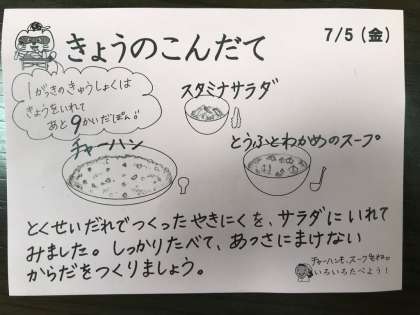 きょうのこんだて
7/5(金)
1がっきのきゅうしょくは
きょうをいれて
あと9かいだぽん!
スタミナサラダ
チャーハン
とうふとわかめのスープ
とくせいだれでつくったやきにくを、サラダにいれて
みました。しっかりたべて、あつさにまけない
からだをつくりましょう。
いろいろたべよう!